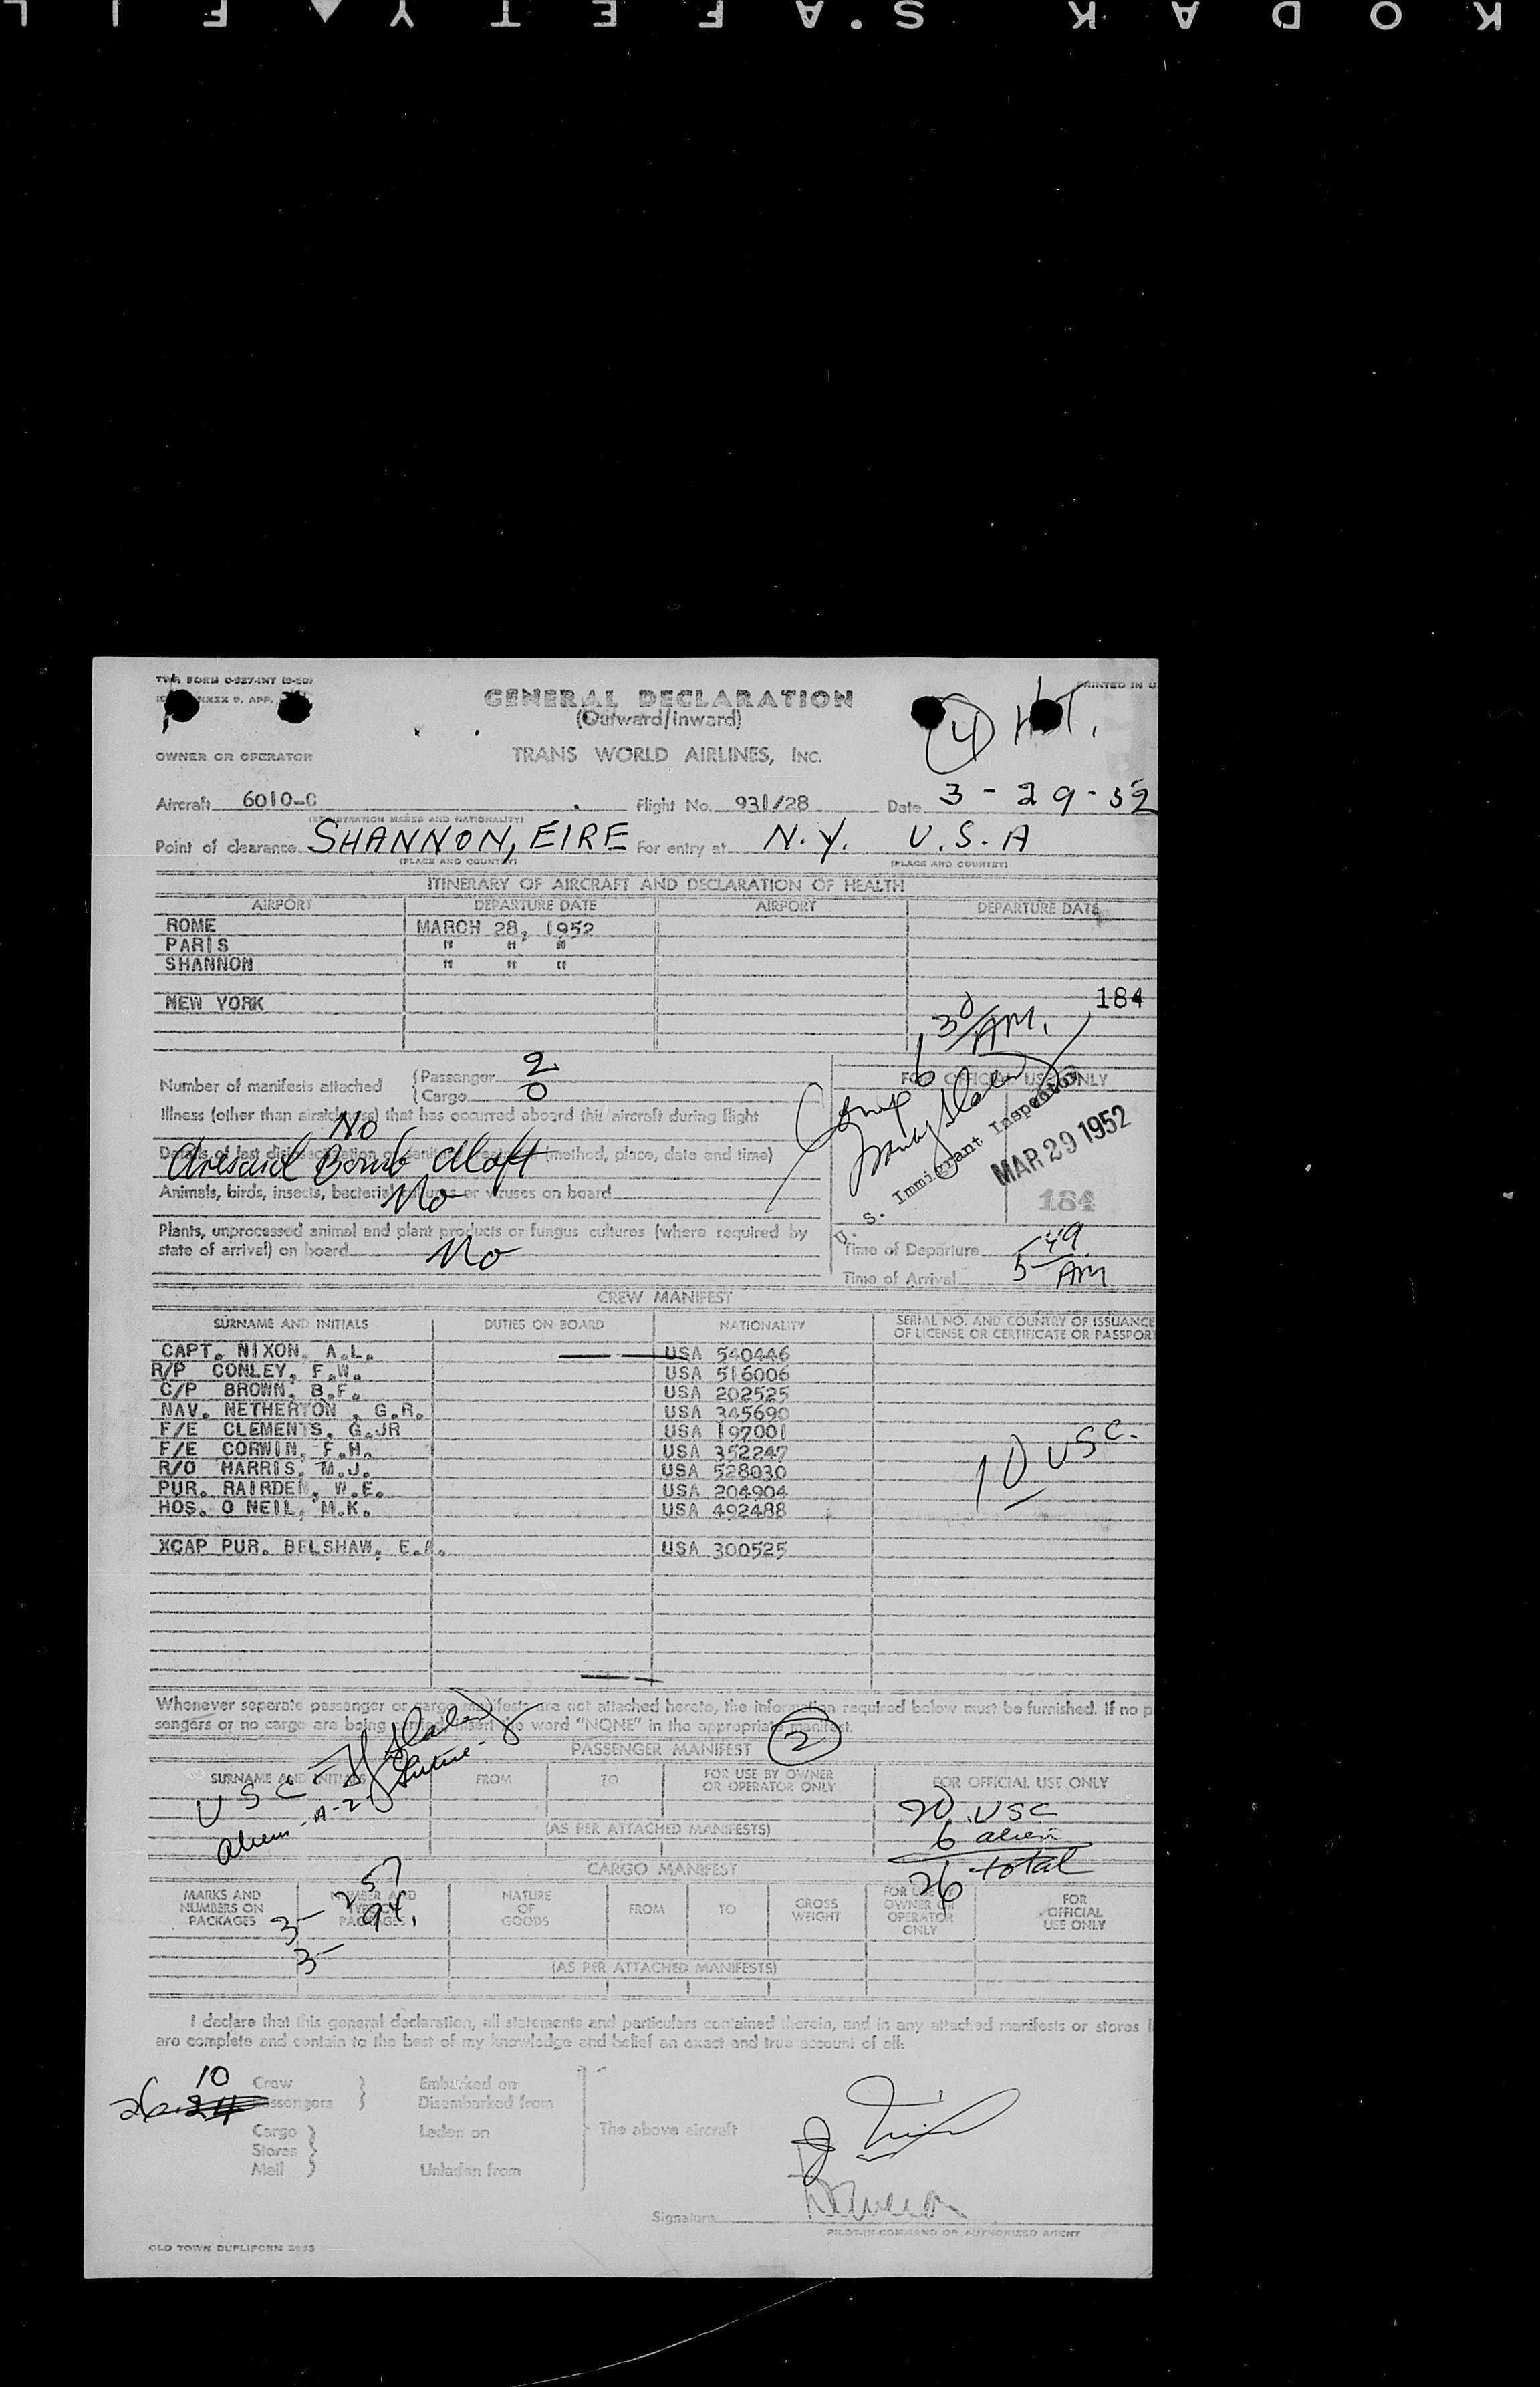 KODAK S.AFETY FIL
TWA FORM 0-927-INT (9-50)
ANNEX 9, APP.
PRINTED IN U.
GENERAL DECLARATION
(Outward/Inward)
(4)
OWNER OR OPERATOR
TRANS WORLD AIRLINES, INC.
Aircraft 6010-C Flight No. 931/28 Date 3-29-52
(REGISTRATION MARKS AND NATIONALITY)
Point of clearance SHANNON, EIRE For entry at N.Y. U.S.A
(PLACE AND COUNTRY) (PLACE AND COUNTRY)
ITINERARY OF AIRCRAFT AND DECLARATION OF HEALTH
AIRPORT DEPARTURE DATE AIRPORT DEPARTURE DATE
ROME MARCH 28, 1952
PARIS " " "
SHANNON " " "
NEW YORK
184
6 30/AM.
Number of manifests attached
Passenger 2
Cargo 0
FOR OFFICIAL USE ONLY
Illness (other than airsickness) that has occurred aboard this aircraft during flight
No
Details of last disinsectization or sanitary treatment (method, place, date and time)
Aresaid Bomb Aloft
Animals, birds, insects, bacterial cultures or viruses on board
No
Plants, unprocessed animal and plant products or fungus cultures (where required by
state of arrival) on board No
U. S. Immigrant Inspector
MAR 29 1952
184
Time of Departure
5 49 AM
Time of Arrival
CREW MANIFEST
SURNAME AND INITIALS DUTIES ON BOARD NATIONALITY SERIAL NO. AND COUNTRY OF ISSUANCE
OF LICENSE OR CERTIFICATE OR PASSPOR
CAPT. NIXON, A.L. USA 540446
R/P CONLEY, F.W. USA 516006
C/P BROWN, B.F. USA 202525
NAV. NETHERTON , G.R. USA 345690
F/E CLEMENTS, G.JR USA 197001
F/E CORWIN, F.H. USA 352247
R/O HARRIS, M.J. USA 528030
PUR. RAIRDEN, W.E. USA 204904
HOS. O NEIL, M.K. USA 492488
10 USC.
XCAP PUR. BELSHAW, E.A. USA 300525
Whenever separate passenger or cargo manifests are not attached hereto, the information required below must be furnished. If no p
sengers or no cargo are being carried insert the word "NONE" in the appropriate manifest.
PASSENGER MANIFEST (2)
SURNAME AND INITIALS FROM TO FOR USE BY OWNER
OR OPERATOR ONLY FOR OFFICIAL USE ONLY
USC
Alien A-2
20 USC
6 alien
26 total
(AS PER ATTACHED MANIFESTS)
CARGO MANIFEST
MARKS AND
NUMBERS ON
PACKAGES
NUMBER AND
TYPE OF
PACKAGES
NATURE
OF
GOODS
FROM
TO
GROSS
WEIGHT
FOR USE BY
OWNER OR
OPERATOR
ONLY
FOR
OFFICIAL
USE ONLY
3- 257
3- 94.
(AS PER ATTACHED MANIFESTS)
I declare that this general declaration, all statements and particulars contained therein, and in any attached manifests or stores l
are complete and contain to the best of my knowledge and belief an exact and true account of all:
10 Crew Embarked on
26 24 Passengers Disembarked from
Cargo Laden on The above aircraft
Stores
Mail Unladen from
Signature
PILOT-IN-COMMAND OR AUTHORIZED AGENT
OLD TOWN DUPLIFORM 2933